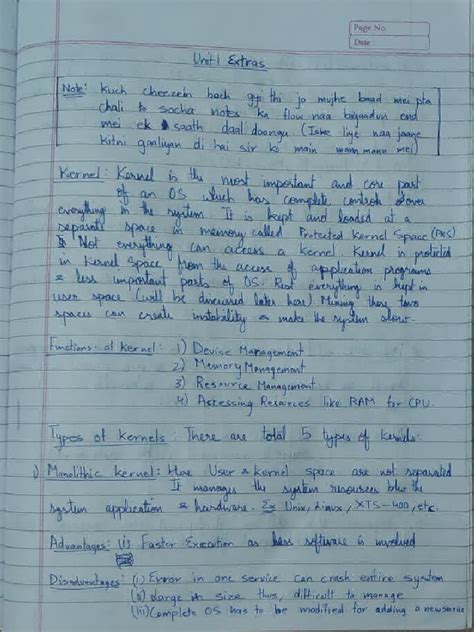 Page No.
Date
Unit 1 Extras
Note: Kuch cheezein bach gyi thi jo mujhe baad mei pta
chali to socha notes ka flow naa bigaadun end
mei ek saath daal doonga (Iske liye naa jaane
kitni gaaliyan di hai sir ko main mann mei)
Kernel: Kernel is the most important and core part
of an OS which has complete control over
everything in the system. It is kept and loaded at a
separate space in memory called Protected Kernel Space (PKS)
Not everything can access a kernel. Kernel is protected
in Kernel Space from the access of application programs
& less important parts of OS. Rest everything is kept in
user space (will be discussed later here). Mixing these two
spaces can create instability & make the system slow.
Functions of Kernel: 1) Device Management
2) Memory Management
3) Resource Management
4) Accessing Resources like RAM for CPU.
Types of Kernels: There are total 5 types of kernels:
1) Monolithic Kernel: Here User & kernel space are not separated
It manages the system resources b/w the
system application & hardware. Ex Unix, Linux, XTS-400, etc.
Advantages: (i) Faster Execution as less software is involved
Disadvantages: (i) Error in one service can crash entire system
(ii) Large in size thus, difficult to manage
(iii) Complete OS has to be modified for adding a new service